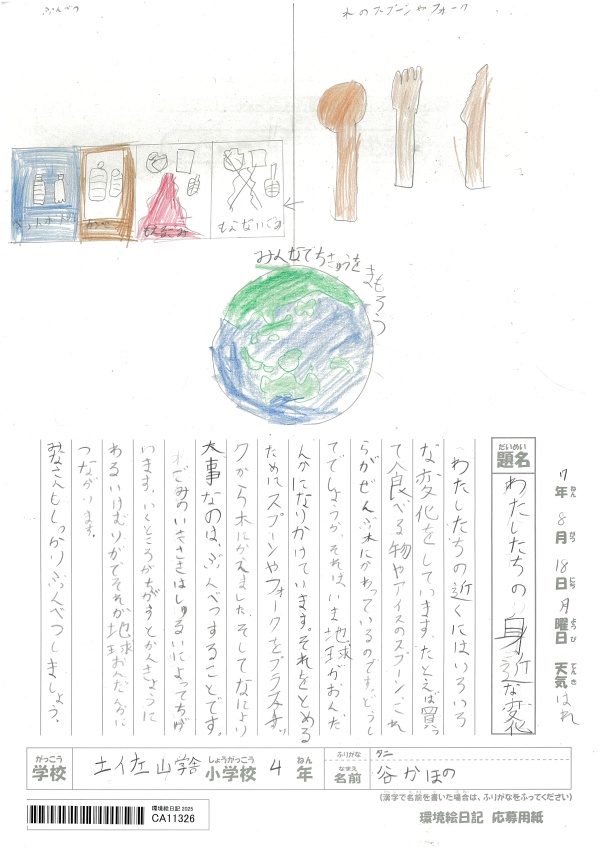 ぶんべつ
木のスプーンやフォーク
ペットボトル
かん
もえるごみ
もえないごみ
みんなでちきゅうをまもろう
7年8月18日月曜日 天気はれ
ねん がつ にち ようび てんき
だいめい
題名 わたしたちの身近な変化
わたしたちの近くにはいろいろ
な変化をしています。たとえば買っ
て食べる物やアイスのスプーン、これ
らがぜんぶ木にかわっているのです。どうし
てでしょうか。それはいま地球がおんだ
んかになりかけています。それをとめる
ためにスプーンやフォークをプラスチッ
クから木にかえました。そしてなにより
大事なのは、ぶんべつすることです。
ごみのいきさきはしゅるいによってちが
います。いくところがちがうとかんきょうに
わるいけむりがでてそれが地球おんだんかに
つながります。
みなさんもしっかりぶんべつしましょう。
がっこう
学校 土佐山学舎 しょうがっこう 小学校 4 ねん 年
ふりがな タニ
なまえ
名前 谷かほの
(漢字で名前を書いた場合は、ふりがなをふってください)
環境絵日記 2025
CA11326
環境絵日記 応募用紙